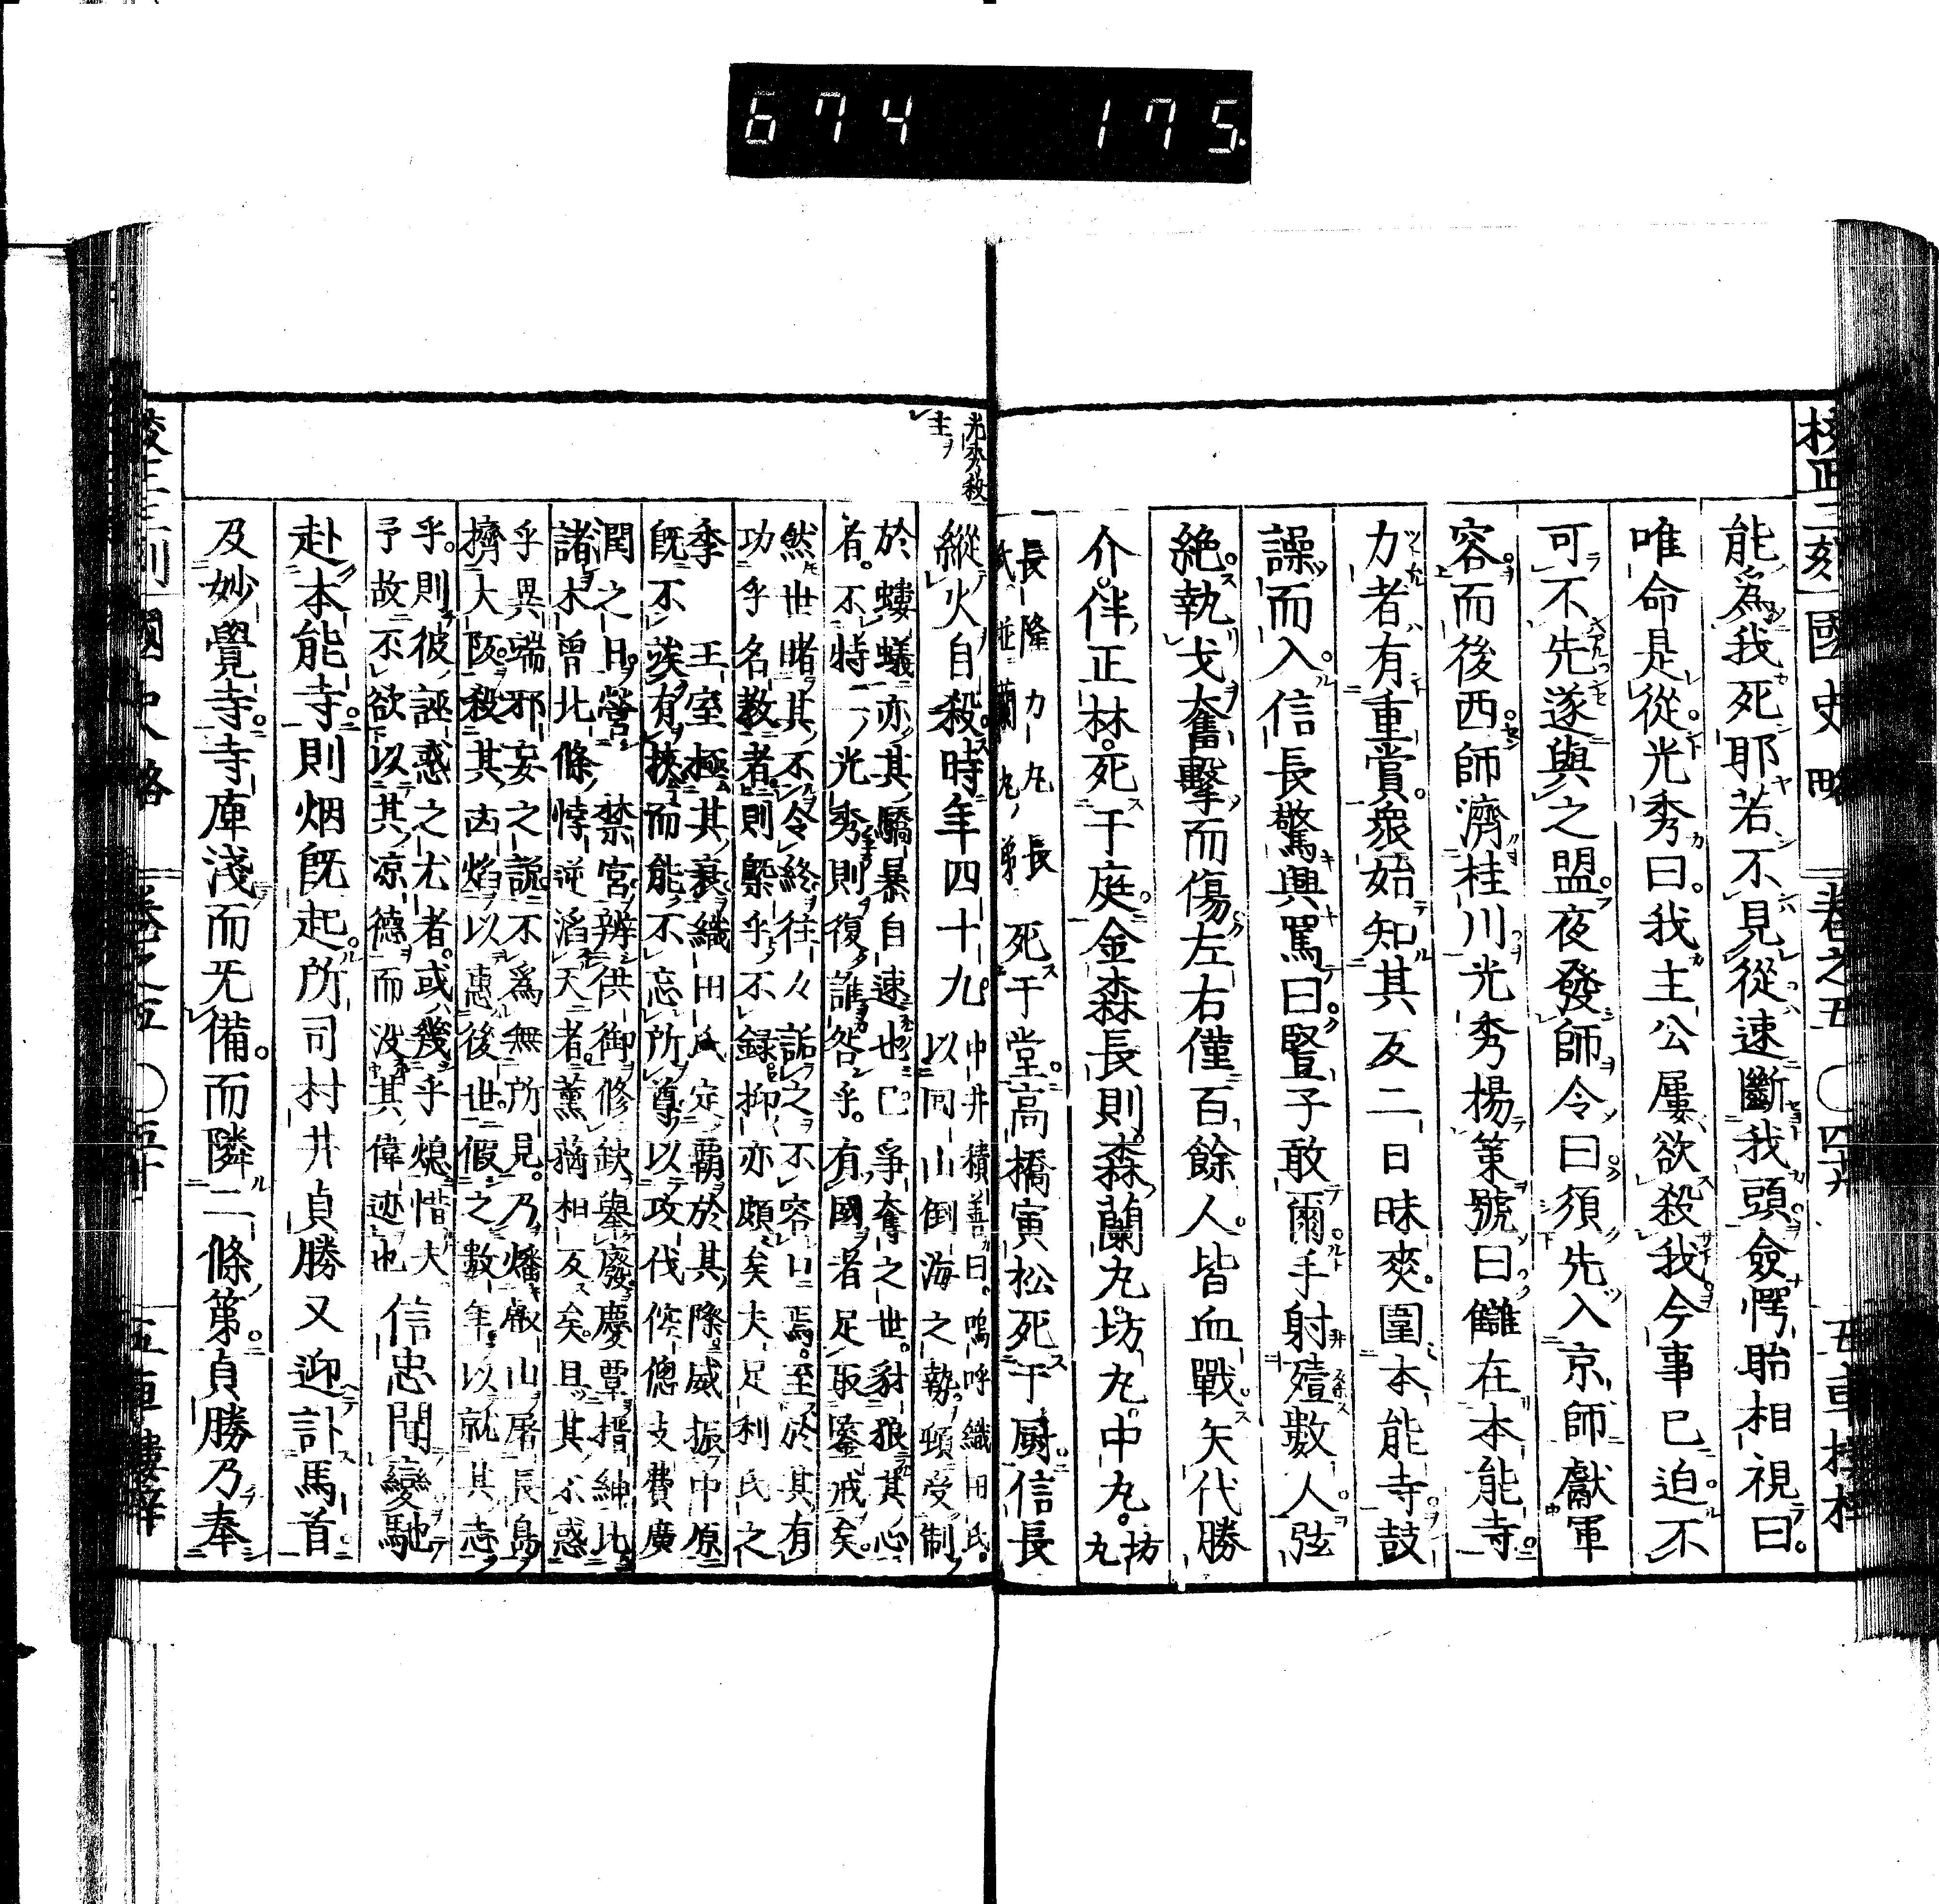 674 175
校正三刻國史略 卷之五 〇四十九 五車樓梓
能爲我死耶若不見從速斷我頭僉愕眙相視曰
唯命是從光秀曰我主公屢欲殺我今事已迫不
可不先遂與之盟夜發師令曰須先入京師獻軍
容而後西師濟桂川光秀揚策號曰讎在本能寺
力者有重賞衆始知其反二日昧爽圍本能寺鼓
譟而入信長驚興罵曰豎子敢爾手射殪數人弦
絶執戈奮擊而傷左右僅百餘人皆血戰矢代勝
介伴正林死于庭金森長則森蘭丸坊丸中丸坊丸
長隆力丸長
氏並蘭丸弟
死于堂高橋寅松死于厨信長
光秀殺
主
縱火自殺時年四十九
中井積善曰嗚呼織田氏
以囘山倒海之勢頓受制
於螻蟻亦其驕暴自速也已爭奪之世豺狼其心
者不特一光秀則復誰咎乎有國者足取鑒戒矣
然世睹其不令終往々詬之不容口焉至於其有
功乎名教者則槩乎不録抑亦頗矣夫足利氏之
季 王室極其衰織田氏定覇於其際威振中原
既不誒有挾而能不忘所尊以攻伐倥傯支費廣
閏之日營 禁宮辨供御修缺擧廢慶覃搢紳比
諸木曾北條悖逆滔天者薫蕕相反矣且其不惑
乎異端邪妄之説不爲無所見乃燔叡山屠長島
擠大阪殺其凶焰以惠後世假之數年以就其志
乎則彼誣惑之尤者或幾乎熄惜夫
予故不欲以其凉德而没其偉迹也
信忠聞變馳
赴本能寺則烟既起所司村井貞勝又迎訃馬首
及妙覺寺寺庫淺而无備而隣二條第貞勝乃奉
校正三刻國史略 卷之五 〇五十 五車樓梓